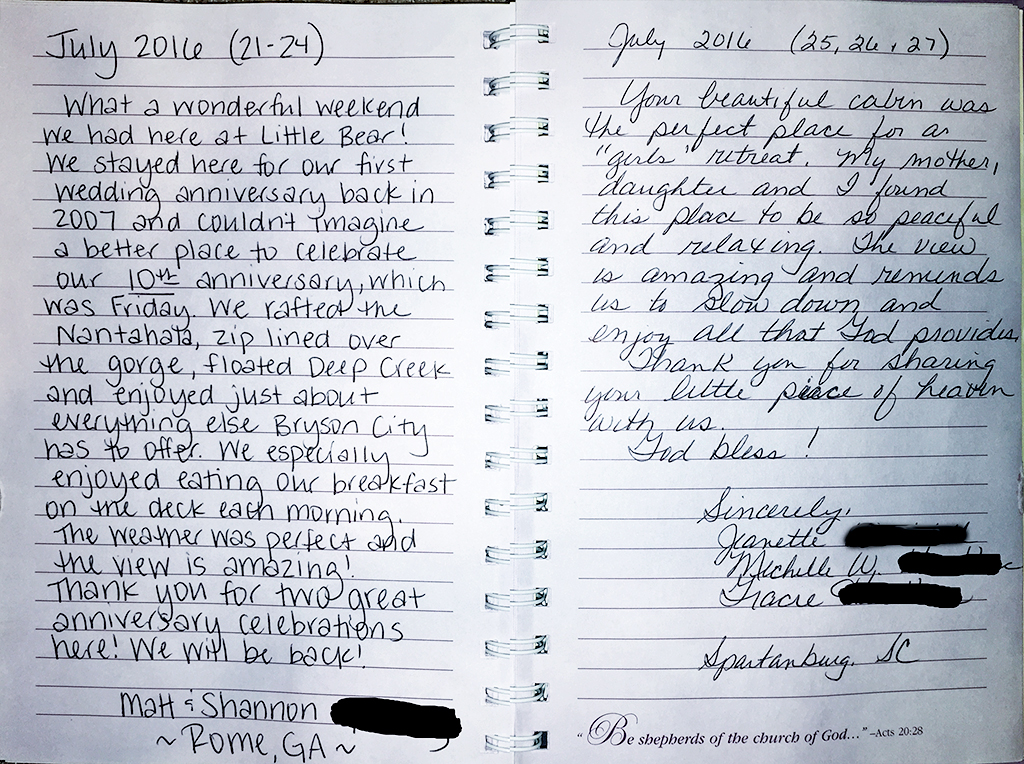 July 2016 (21-24)
What a wonderful weekend
we had here at Little Bear!
We stayed here for our first
wedding anniversary back in
2007 and couldn't imagine
a better place to celebrate
our 10th anniversary, which
was Friday. We rafted the
Nantahala, zip lined over
the gorge, floated Deep Creek
and enjoyed just about
everything else Bryson City
has to offer. We especially
enjoyed eating our breakfast
on the deck each morning.
The weather was perfect and
the view is amazing!
Thank you for two great
anniversary celebrations
here! We will be back!
Matt & Shannon
~ Rome, GA ~
July 2016 (25, 26, 27)
Your beautiful cabin was
the perfect place for an
"girls" retreat. My mother,
daughter and I found
this place to be so peaceful
and relaxing. The view
is amazing and reminds
us to slow down and
enjoy all that God provides.
Thank you for sharing
your little piece of heaven
with us.
God bless!
Sincerely,
Jeanette
Michelle W.
Tracie
Spartanburg, SC
"Be shepherds of the church of God..." –Acts 20:28